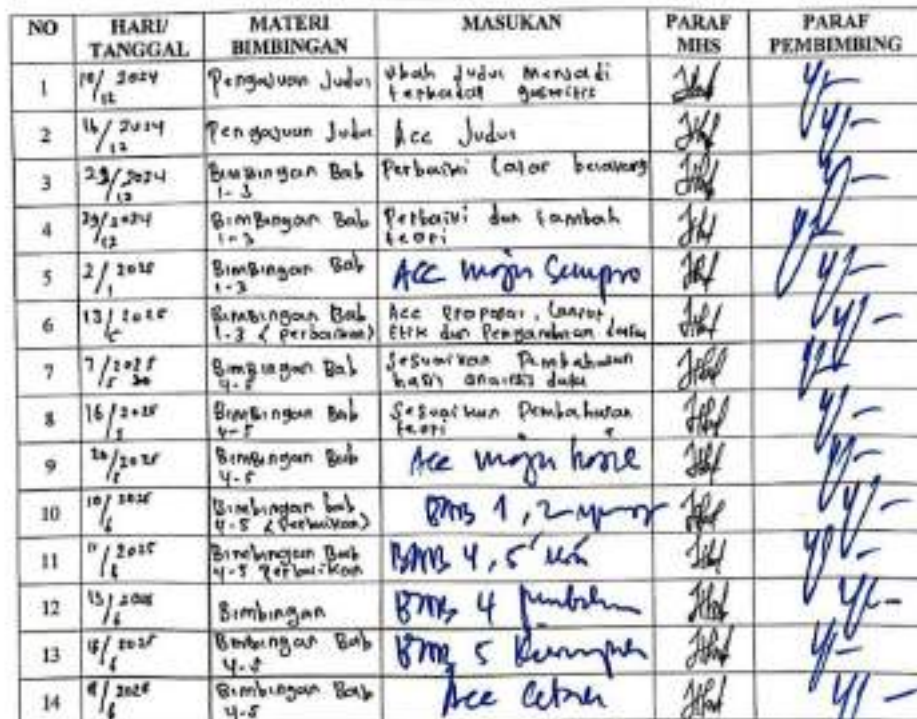 NO HARI/ TANGGAL MATERI BIMBINGAN MASUKAN PARAF MHS PARAF PEMBIMBING
1 10/12 2024 Pengajuan Judul Ubah Judul Menjadi terhadap gastritis
2 16/12 2024 Pengajuan Judul Acc Judul
3 23/12 2024 Bimbingan Bab 1-3 Perbaiki latar belakang
4 29/12 2024 Bimbingan Bab 1-3 Perbaiki dan tambah teori
5 2/1 2025 Bimbingan Bab 1-3 ACC maju Sempro
6 13/ 2025 Bimbingan Bab 1-3 (perbaikan) Acc Proposal, Lanjut Etik dan Pengambilan data
7 7/5 2025 Bimbingan Bab 4-5 Sesuaikan Pembahasan hasil analisis data
8 16/5 2025 Bimbingan Bab 4-5 Sesuaikan Pembahasan teori
9 20/5 2025 Bimbingan Bab 4-5 Acc maju hasil
10 10/6 2025 Bimbingan bab 4-5 (Perbaikan) BAB 1, 2
11 11/6 2025 Bimbingan Bab 4-5 Perbaikan BAB 4, 5
12 13/6 2025 Bimbingan BAB 4
13 2025 Bimbingan Bab 4-5 BAB 5
14 2025 Bimbingan Bab 4-5 Acc Cetak